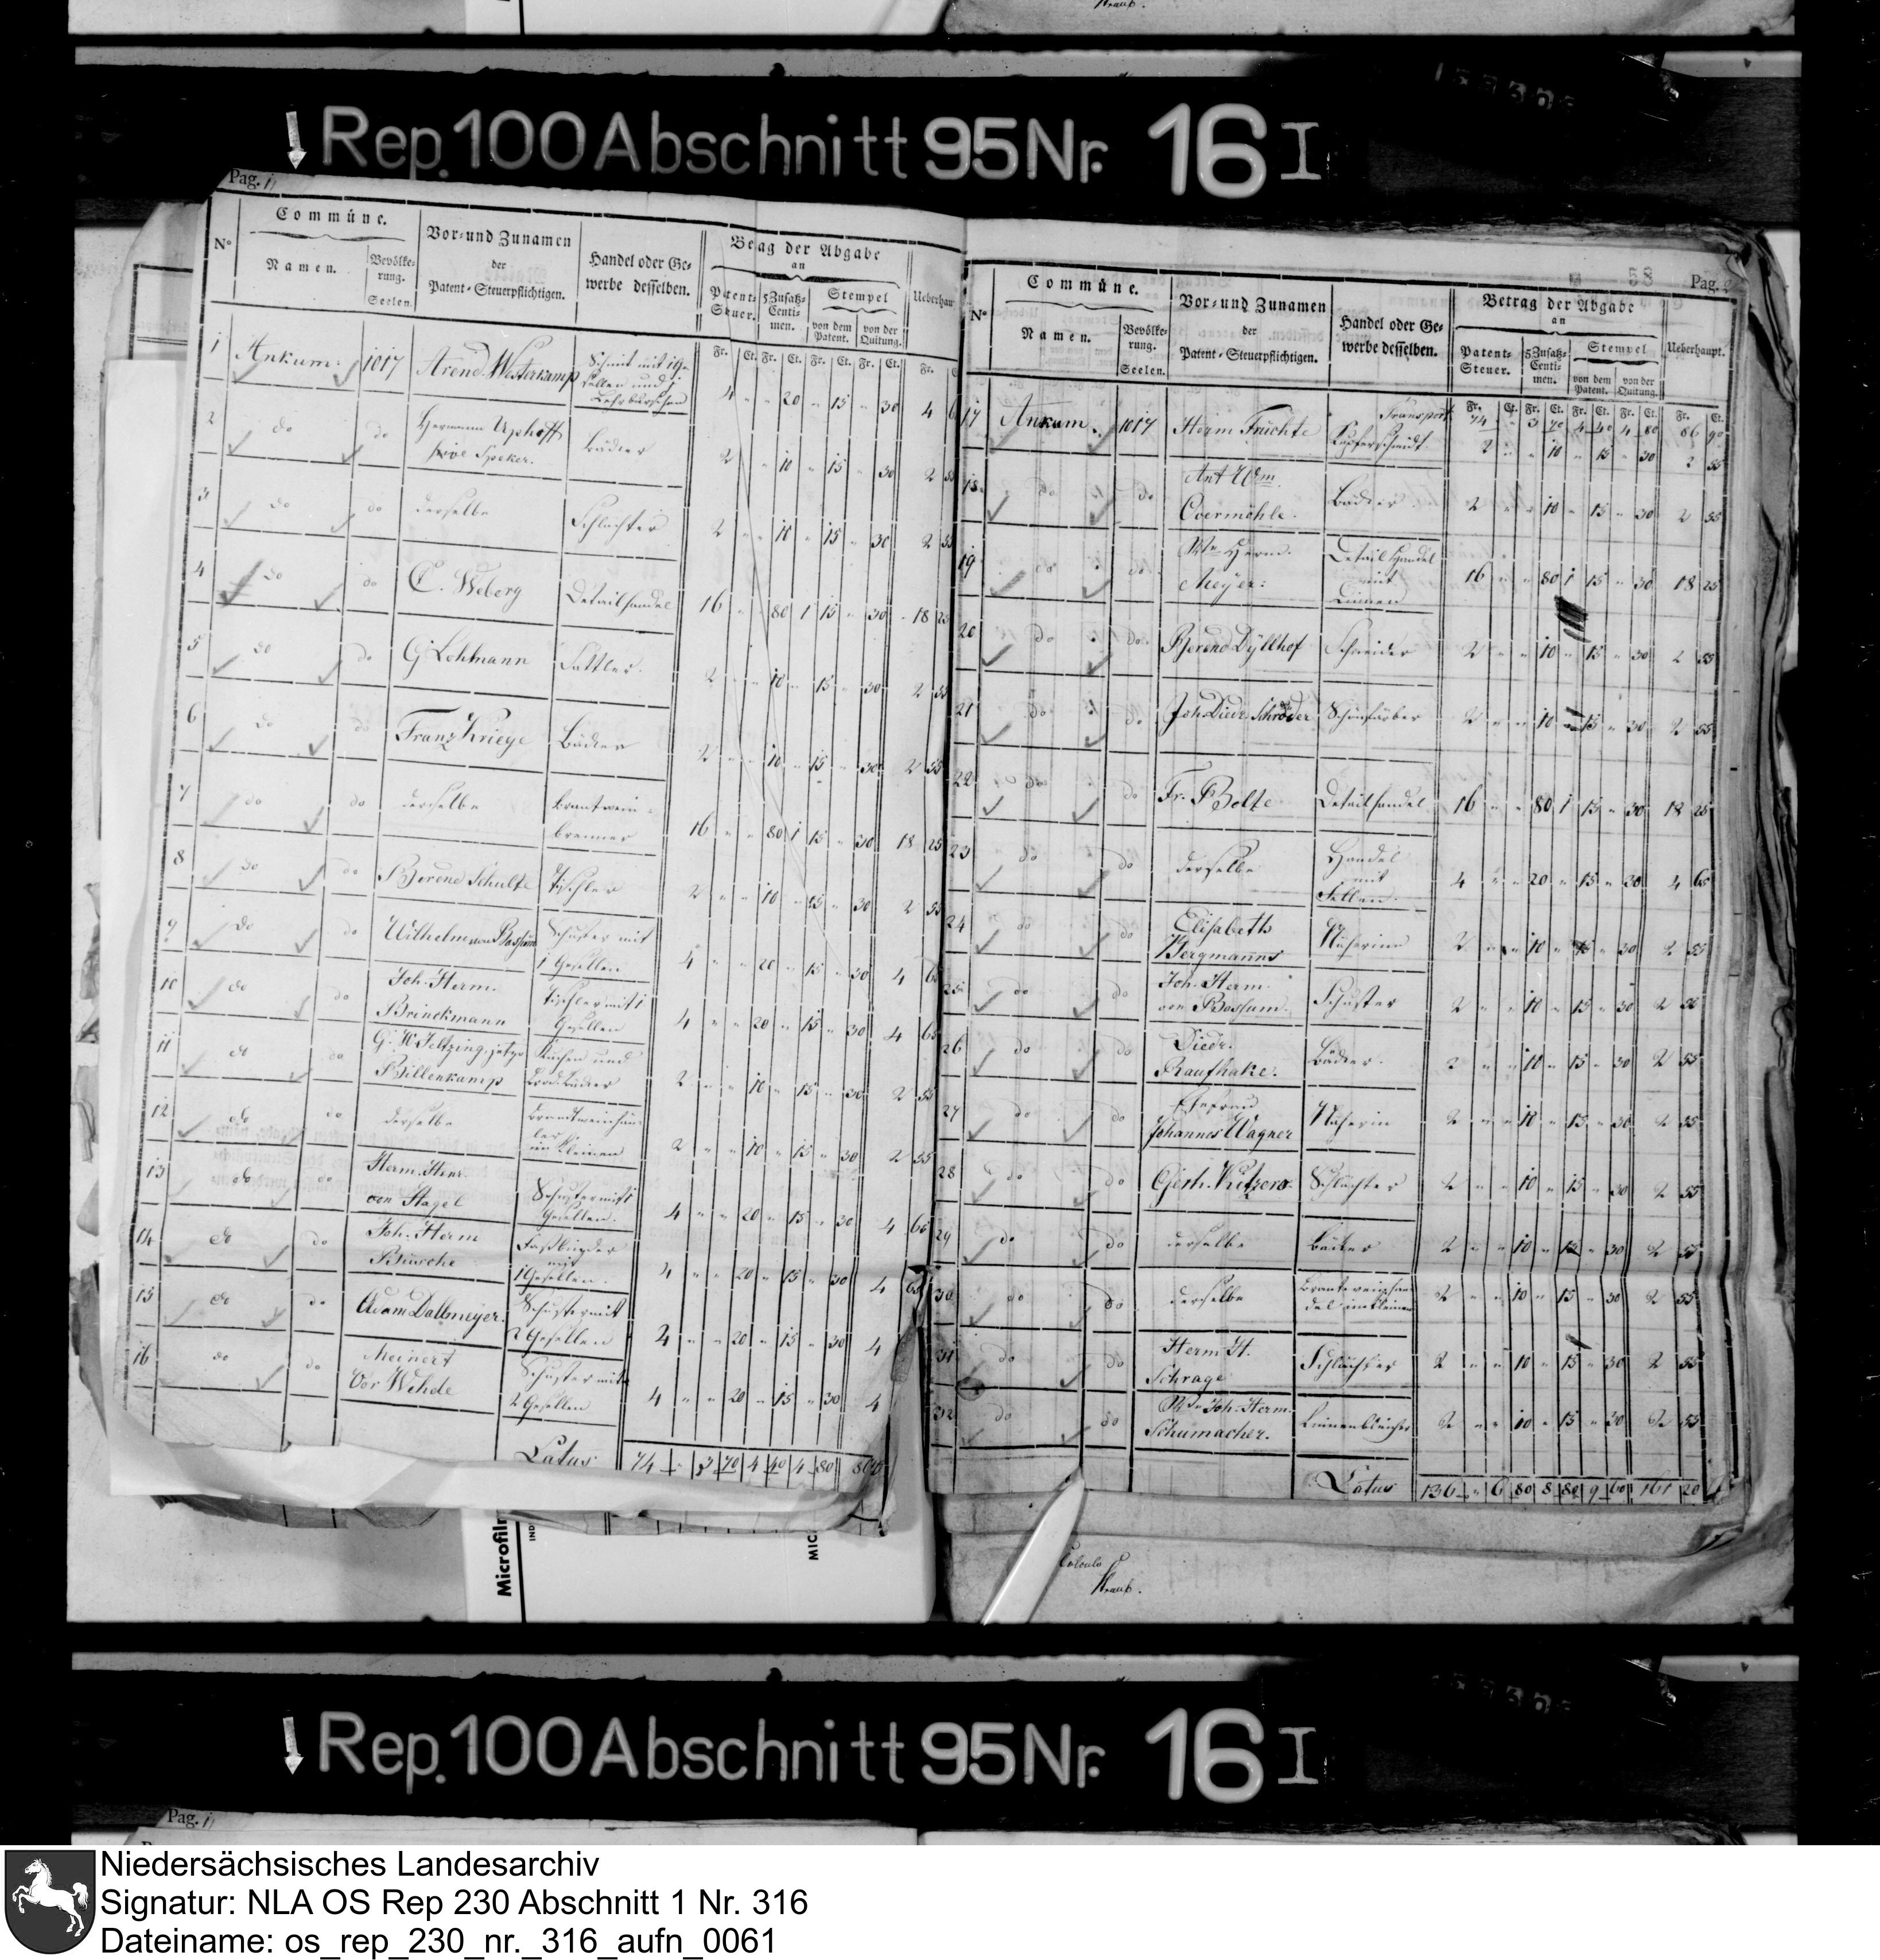 Rep. 100 Abschnitt 95 Nr. 16 I
Pag. 1
N° Commüne. Vor- und Zunamen der Patent-Steuerpflichtigen. Handel oder Gewerbe desselben. Betrag der Abgabe an Ueberhaupt
Namen. Bevölkerung. Seelen. Patent-Steuer. 5 Zusatz-Centimen. Stempel von dem Patent. von der Quitung.
Fr. Ct. Fr. Ct. Fr. Ct. Fr. Ct. Fr.
1 Ankum. 1017 Arend Westerkamp Schmit mit 1 Ge-
sellen und 1
Lehrburschen 4 " " 20 " 15 " 30 4 6
2 do do Hermann Uphoff
sive Speker. Bäcker 2 " " 10 " 15 " 30 2 55
3 do do derselbe Schlachter 2 " " 10 " 15 " 30 2 55
4 do do C. Weberg Detailhandel 16 " " 80 1 15 " 30 18 25
5 do do G Lohmann Sattler. 2 " " 10 " 15 " 30 2 55
6 do do Franz Kriege Bäcker 2 " " 10 " 15 " 30 2 55
7 do do derselbe Brantwein-
brenner 16 " " 80 1 15 " 30 18 25
8 do do Berend Schulte Tischler 2 " " 10 " 15 " 30 2 55
9 do do Wilhelm von Bossum Schuster mit
1 Gesellen 4 " " 20 " 15 " 30 4 65
10 do do Joh. Herm.
Brinckmann Tischler mit 1
Gesellen 4 " " 20 " 15 " 30 4 65
11 do do G. W. jetzo
Billenkamp und
Bäcker 2 " " 10 " 15 " 30 2 55
12 do do derselbe Brantweinhänd-
ler
im Kleinen 2 " " 10 " 15 " 30 2 55
13 do do Herm. Henr.
von Hagel Schuster mit 1
Gesellen. 4 " " 20 " 15 " 30 4 65
14 do do Joh. Herm
Büsche Fasbinder
mit
1 Gesellen. 4 " " 20 " 15 " 30 4 65
15 do do Adam Dallmeyer. Schuster mit
2 Gesellen 4 " " 20 " 15 " 30 4
16 do do Meinert
Vor Wehde Schuster mit
2 Gesellen 4 " " 20 " 15 " 30 4
Latus 74 " 3 70 4 40 4 80 86 90
58 Pag. 2
N° Commüne. Vor- und Zunamen der Patent-Steuerpflichtigen. Handel oder Gewerbe desselben. Betrag der Abgabe an Ueberhaupt.
Namen. Bevölkerung. Seelen. Patent-Steuer. 5 Zusatz-Centimen. Stempel von dem Patent. von der Quitung.
Fr. Ct. Fr. Ct. Fr. Ct. Fr. Ct. Fr. Ct.
Transport 74 " 3 70 4 40 4 80 86 90
17 Ankum. 1017 Herm Früchte Kupferschmidt. 2 " " 10 " 15 " 30 2 55
18 do do Ant Wm.
Overmöhle. Bäcker 2 " " 10 " 15 " 30 2 55
19 do do Herm.
Meyer: Detailhandel
mit
Linnen 16 " " 80 1 15 " 30 18 25
20 do do Berend Dyllhof Schneider 2 " " 10 " 15 " 30 2 55
21 do do Joh Diedr. Schröder Schönfärber 2 " " 10 " 15 " 30 2 55
22 do do Fr. Bolte Detailhandel 16 " " 80 1 15 " 30 18 25
23 do do derselbe Handel
mit
Fellen 4 " " 20 " 15 " 30 4 65
24 do do Elisabeth
Bergmanns Näherinn 2 " " 10 " 15 " 30 2 55
25 do do Joh. Herm.
von Bossum. Schuster 2 " " 10 " 15 " 30 2 55
26 do do Diedr.
Raufhake. Bäcker. 2 " " 10 " 15 " 30 2 55
27 do do Ehefrau
Johannes Wagner Näherin 2 " " 10 " 15 " 30 2 55
28 do do Gerh. Schlachter 2 " " 10 " 15 " 30 2 55
29 do do derselbe Bäcker 2 " " 10 " 15 " 30 2 55
30 do do derselbe Brantweinhan
del im Kleinen 2 " " 10 " 15 " 30 2 55
31 do do Herm H.
Schrage Schlachter 2 " " 10 " 15 " 30 2 55
32 do do Joh. Herm.
Schumacher. 2 " " 10 " 15 " 30 2 55
Latus 136 " 6 80 8 80 9 60 161 20
Microfil
IND
MIC
Calculo
Rep. 100 Abschnitt 95 Nr. 16 I
Pag. 1
Niedersächsisches Landesarchiv
Signatur: NLA OS Rep 230 Abschnitt 1 Nr. 316
Dateiname: os_rep_230_nr._316_aufn_0061